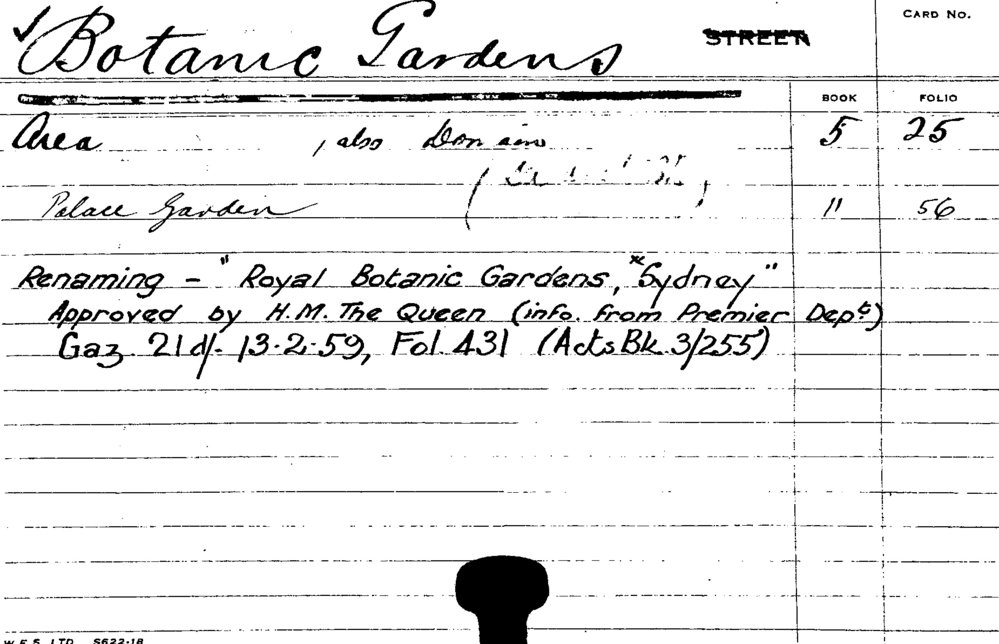 ✓ Botanic Gardens STREET CARD No.
BOOK FOLIO
Area , also Domain 5 25
Palace Garden 11 56
Renaming - "Royal Botanic Gardens, Sydney"
Approved by H.M. The Queen (info. from Premier Dept)
Gaz. 21 d/- 13.2.59, Fol. 431 (Acts Bk. 3/255)
W.E.S. LTD. S622-18